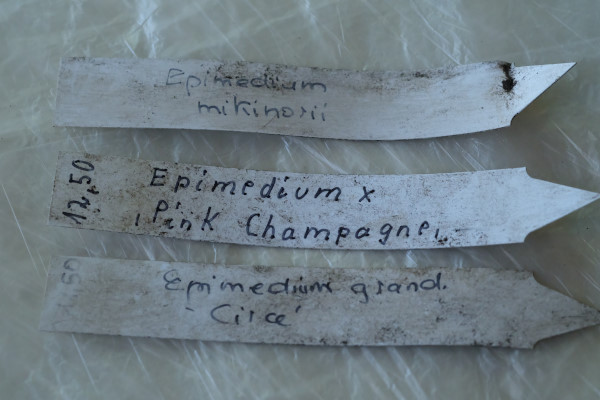 Epimedium
mikinorii
12,50
Epimedium x
'Pink Champagne'
Epimedium grand.
'Circe'